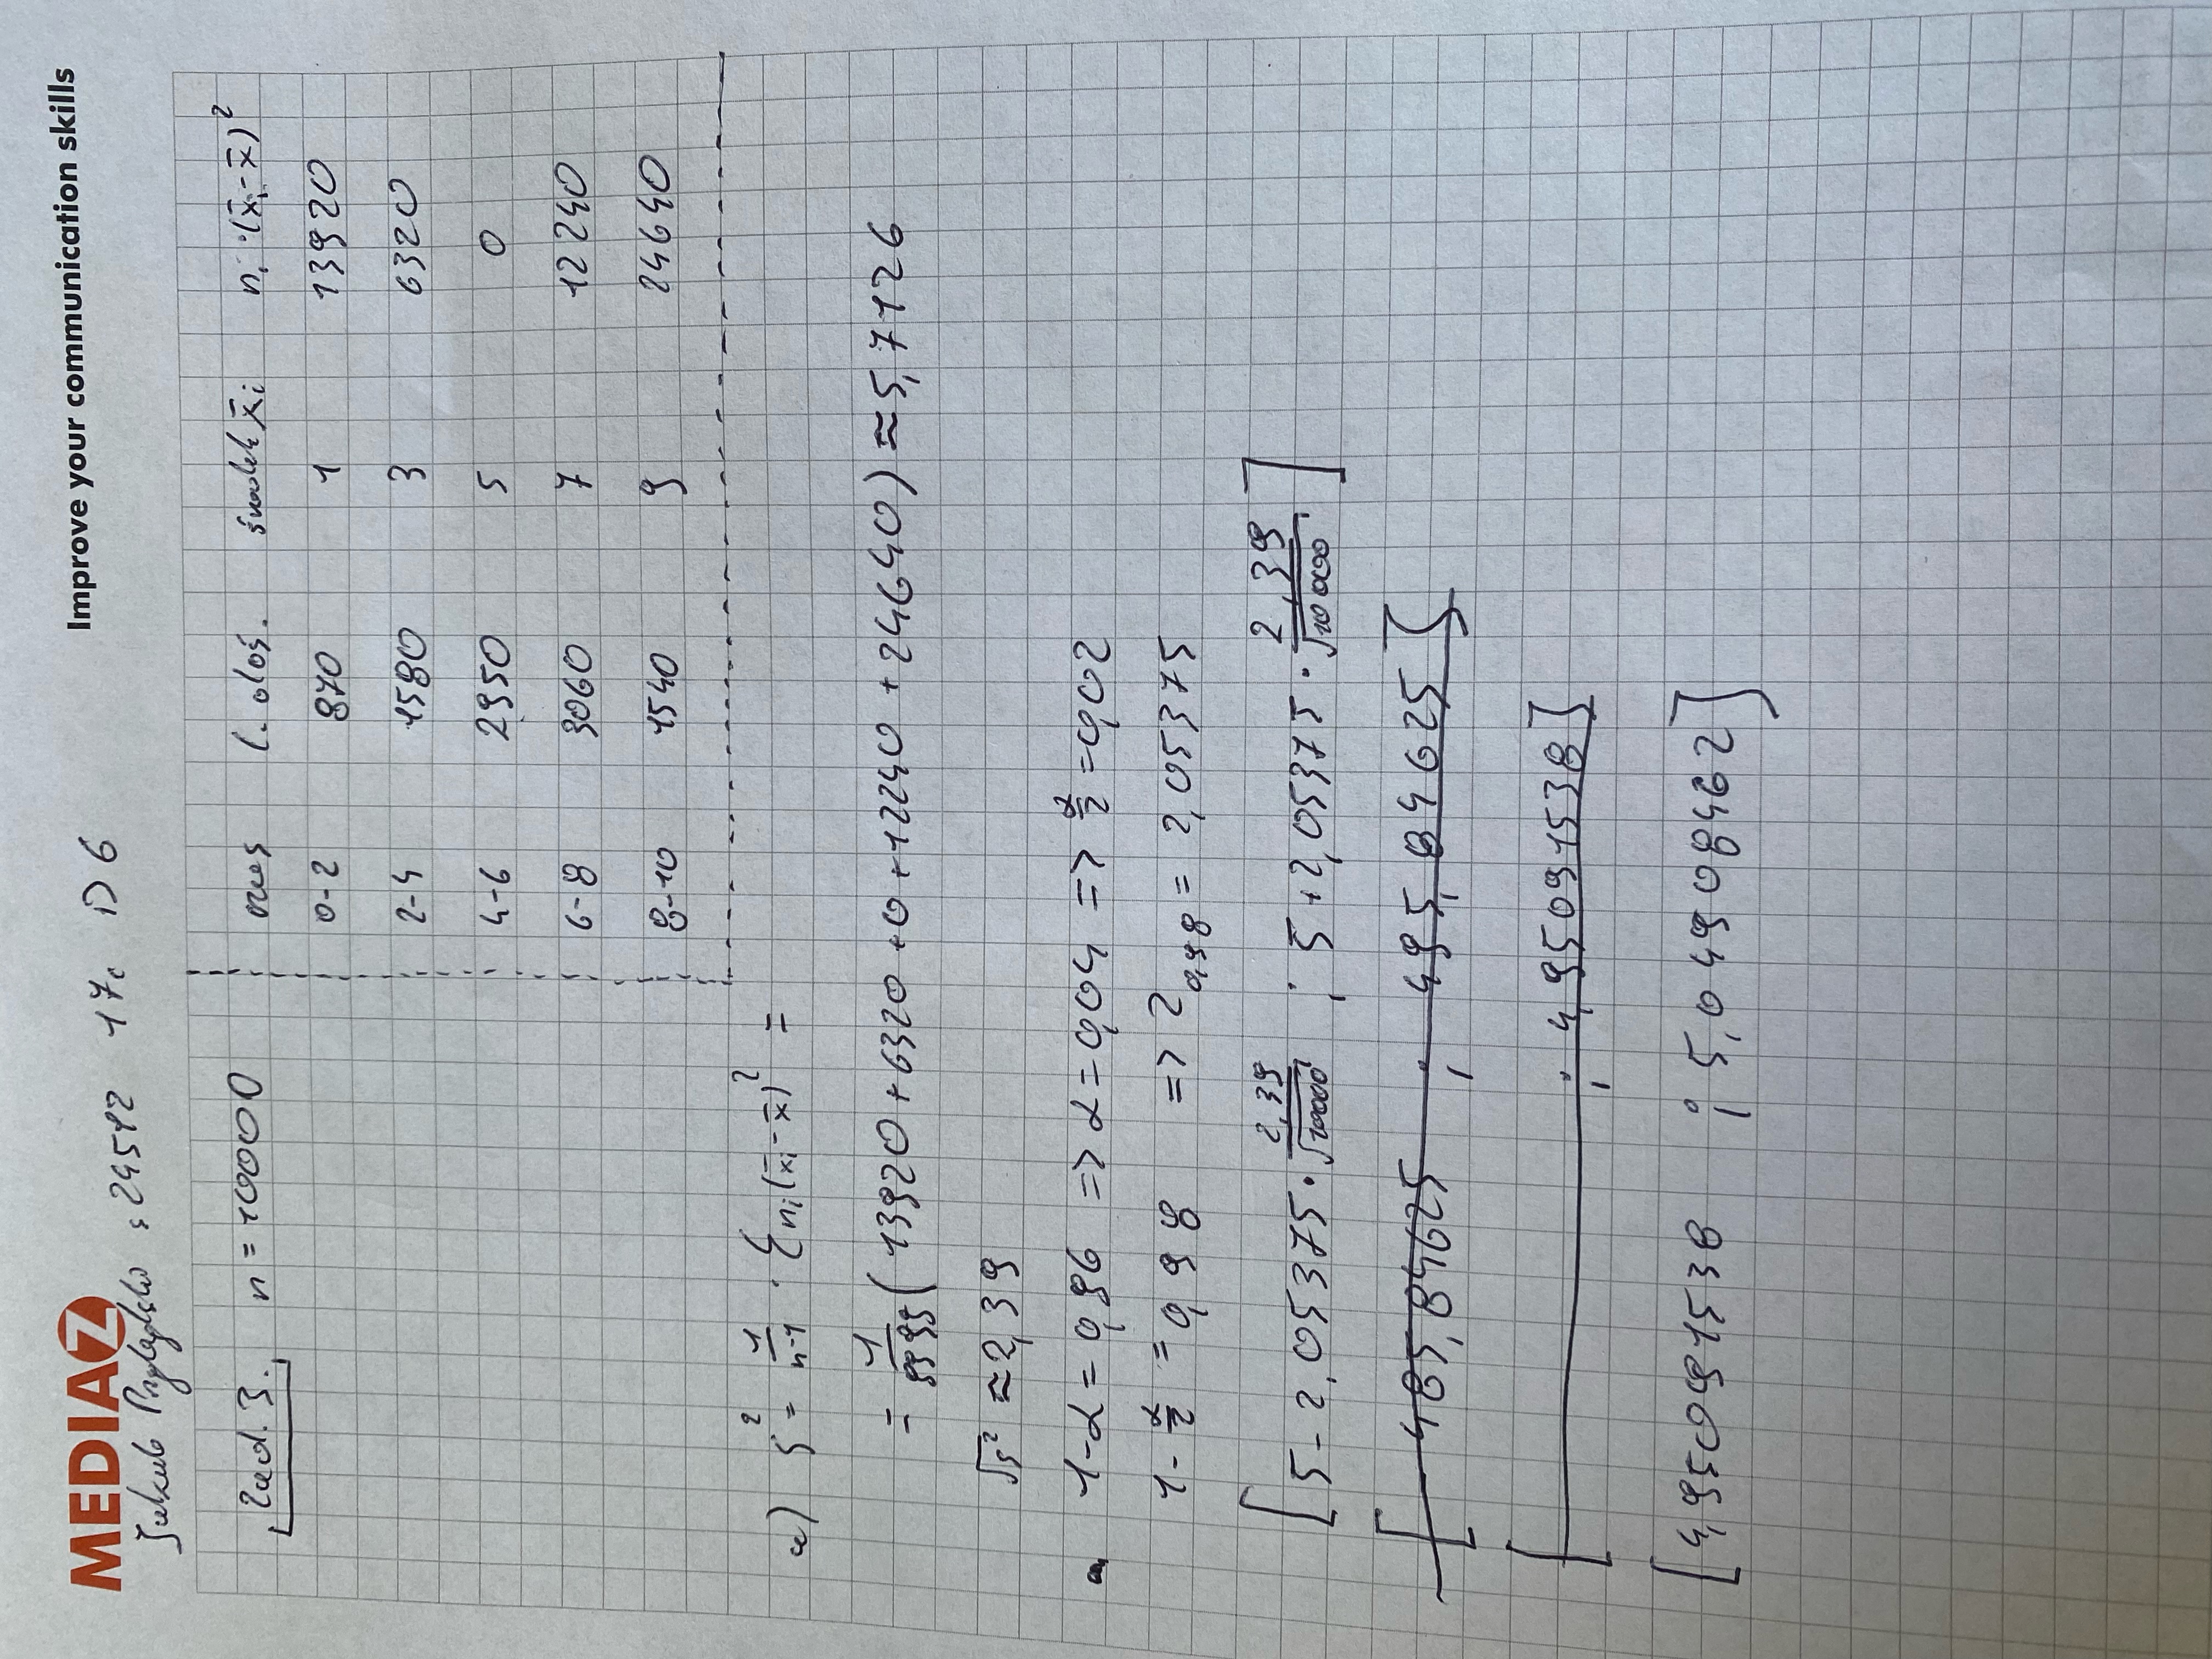 MEDIAZ
Improve your communication skills
Jakub s24512 17c D6
Zad. 3. n = 10000
czas l. doś. środek x̄ᵢ nᵢ·(x̄ᵢ-x̄)²
0-2 870 1 13920
2-4 1580 3 6320
4-6 2950 5 0
6-8 3060 7 12240
8-10 1540 9 24640
a) s² = 1/(n-1) · Σnᵢ(x̄ᵢ-x̄)² =
= 1/9999 (13920+6320+0+12240+24640) ≈ 5,7126
√s² ≈ 2,39
1-α = 0,96 => α = 0,04 => α/2 = 0,02
1-α/2 = 0,98 => z₀,₉₈ = 2,05375
[5-2,05375·2,39/√10000 ; 5+2,05375·2,39/√10000]
[-485,84625 ; 495,84625]
[ ; 4,95091538]
[4,95091538 ; 5,04908462]